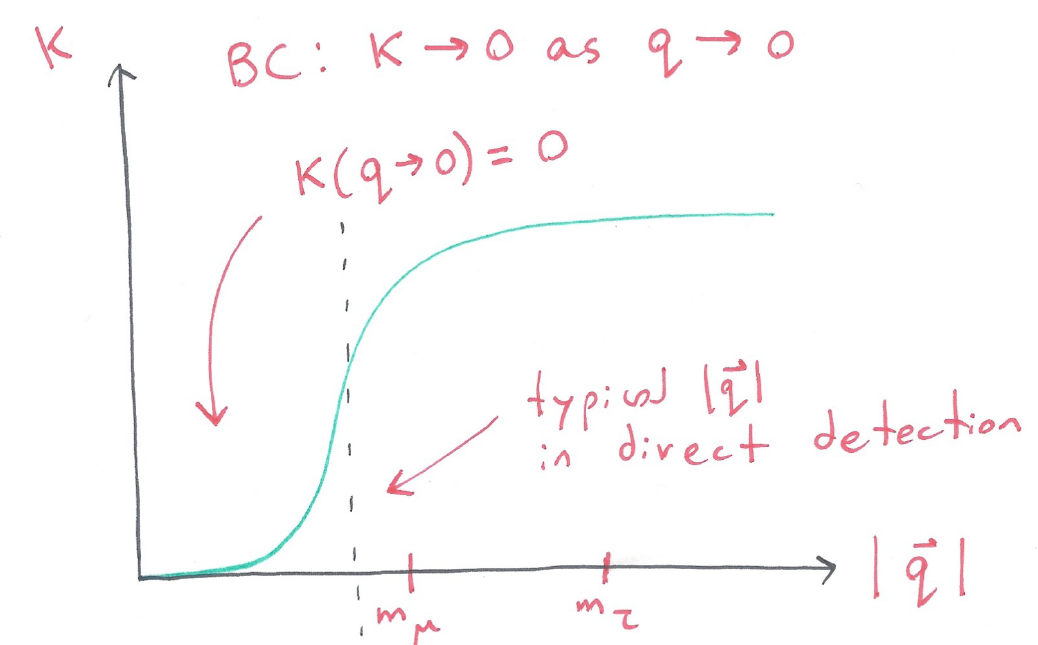 K
BC: K → 0 as q → 0
K(q→0) = 0
typical |q⃗|
in direct detection
|q⃗|
m_μ
m_τ